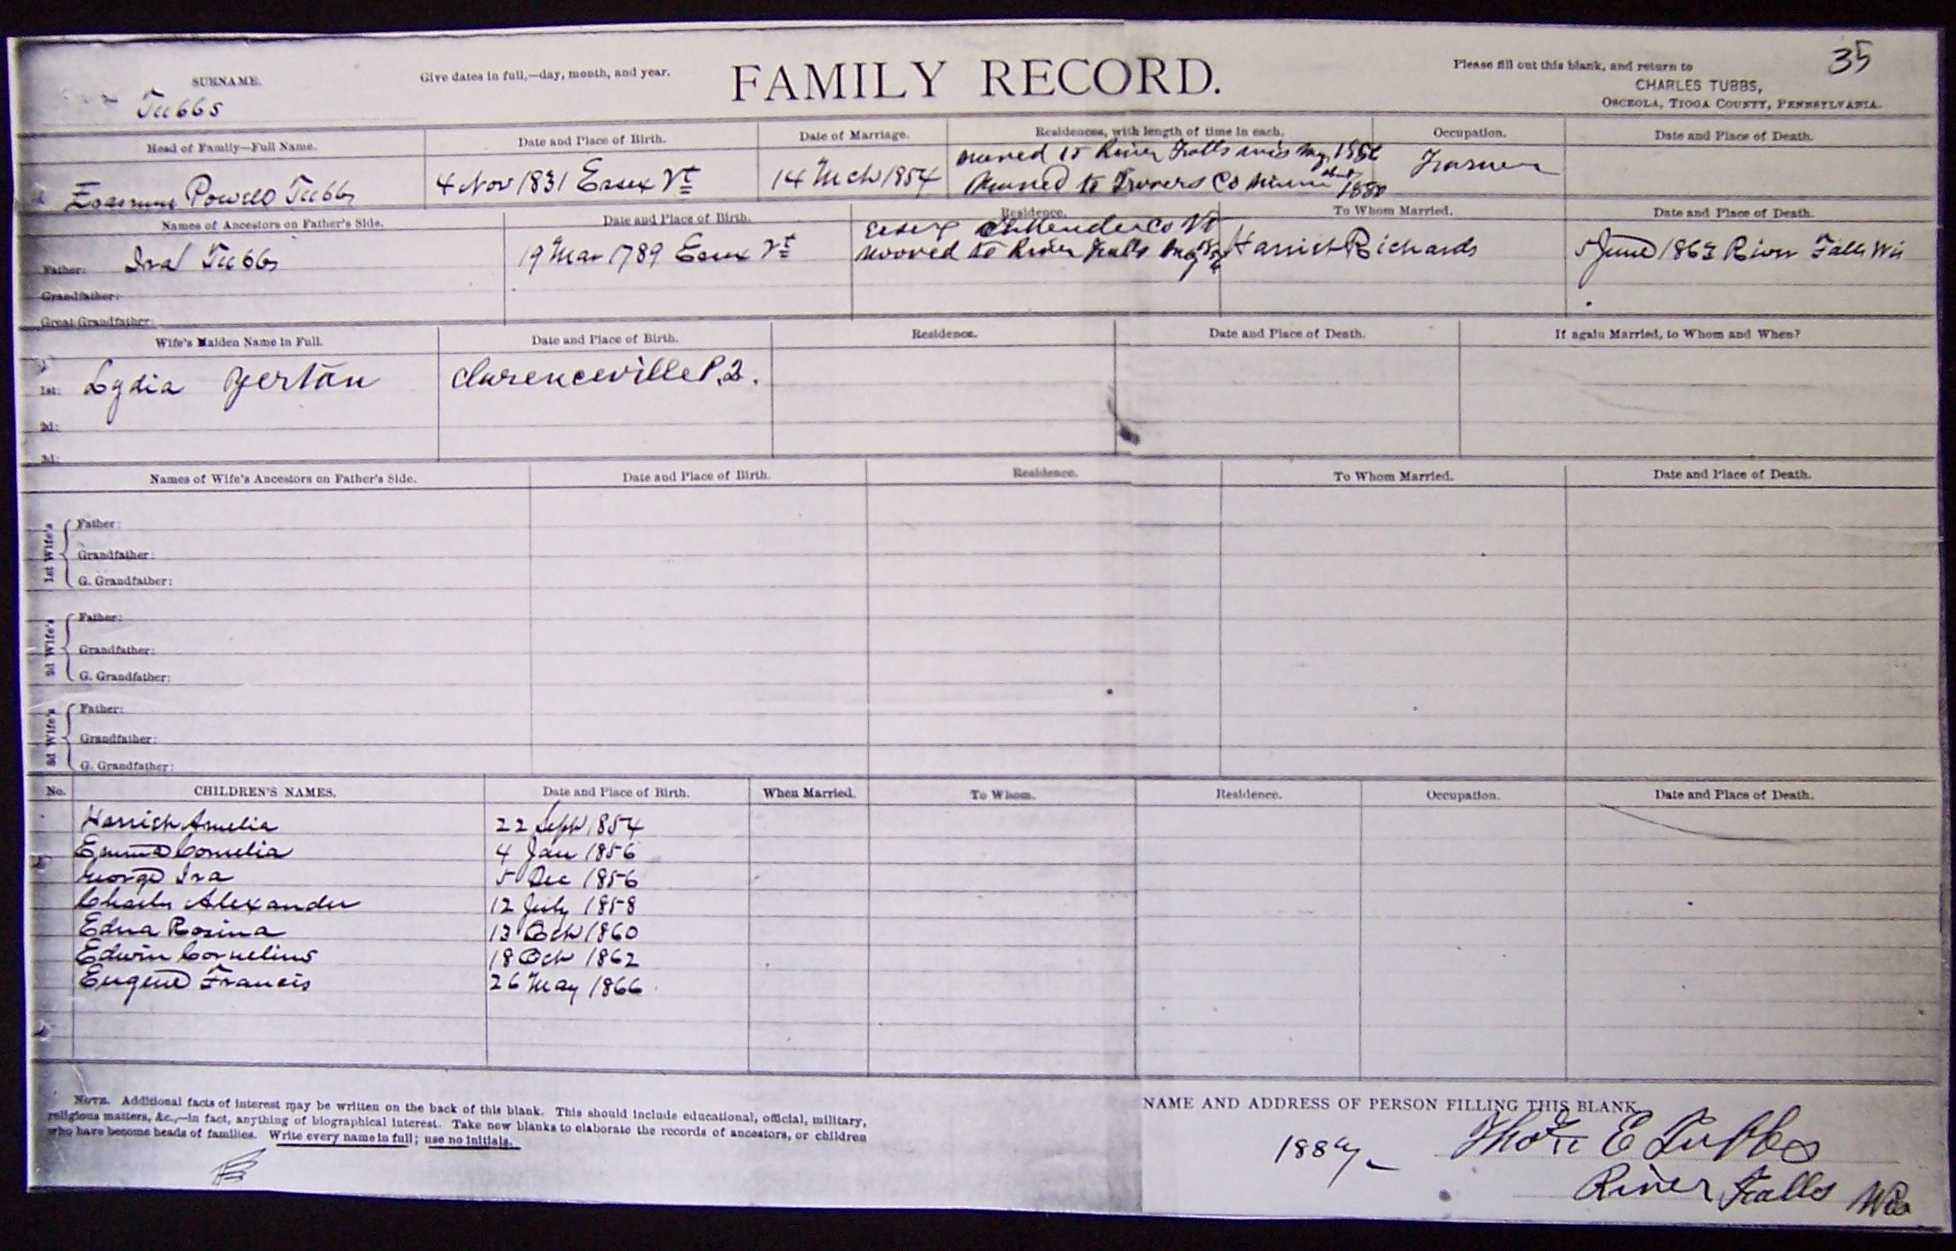 35
SURNAME.
Tubbs
Give dates in full,—day, month, and year.
FAMILY RECORD.
Please fill out this blank, and return to
CHARLES TUBBS,
OSCEOLA, TIOGA COUNTY, PENNSYLVANIA.
Head of Family—Full Name. Date and Place of Birth. Date of Marriage. Residences, with length of time in each. Occupation. Date and Place of Death.
moved to River Falls Wis
Powell Tubbs 4 Nov 1831 Essex Vt 14 Mch 1854 Moved to Co Minn 1880 Farmer
Names of Ancestors on Father's Side. Date and Place of Birth. Residence. To Whom Married. Date and Place of Death.
Essex Chittenden Co Vt
Father: Ira Tubbs 19 Mar 1789 Essex Vt moved to River Falls Harriet Richards 5 June 1863 River Falls Wis
Grandfather:
Great Grandfather:
Wife's Maiden Name in Full. Date and Place of Birth. Residence. Date and Place of Death. If again Married, to Whom and When?
1st: Lydia Clarenceville P.Q.
2d:
3d:
Names of Wife's Ancestors on Father's Side. Date and Place of Birth. Residence. To Whom Married. Date and Place of Death.
1st Wife's
Father:
Grandfather:
G. Grandfather:
2d Wife's
Father:
Grandfather:
G. Grandfather:
3d Wife's
Father:
Grandfather:
G. Grandfather:
No. CHILDREN'S NAMES. Date and Place of Birth. When Married. To Whom. Residence. Occupation. Date and Place of Death.
Harriet Amelia 22 Sept 1854
Emma Cornelia 4 Jan 1856
George Ira 5 Dec 1856
Charles Alexander 12 July 1858
Edna Rosina 13 Oct 1860
Edwin Cornelius 18 Oct 1862
Eugene Francis 26 May 1866
NOTE. Additional facts of interest may be written on the back of this blank. This should include educational, official, military,
religious matters, &c.,—in fact, anything of biographical interest. Take new blanks to elaborate the records of ancestors, or children
who have become heads of families. Write every name in full; use no initials.
NAME AND ADDRESS OF PERSON FILLING THIS BLANK
E Tubbs
River Falls Wis